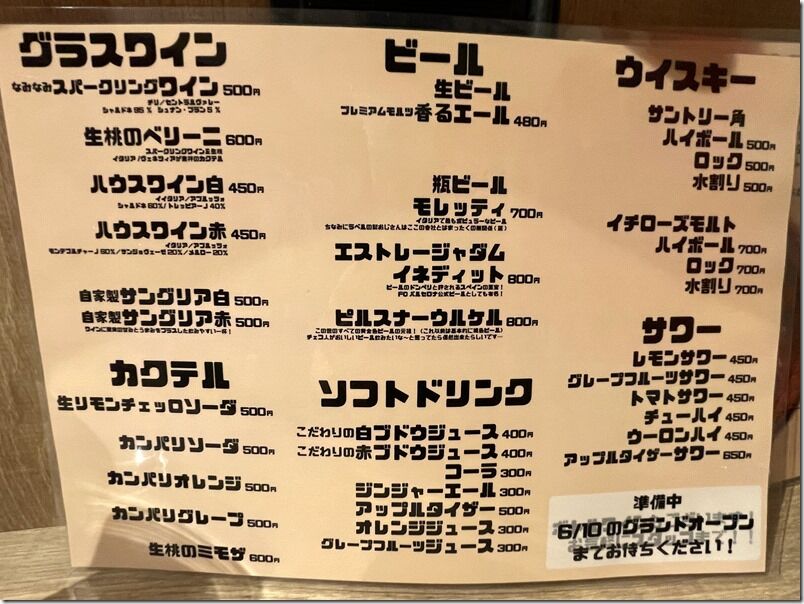 グラスワイン
なみなみスパークリングワイン 500円
チリ/セントラルヴァレー
シャルドネ 95% シュナン・ブラン 5%
生桃のベリーニ 600円
スパークリングワイン&生桃
イタリア/ヴェネツィアが発祥のカクテル
ハウスワイン白 450円
イタリア/アブルッツォ
シャルドネ 60%/トレッビアーノ 40%
ハウスワイン赤 450円
イタリア/アブルッツォ
モンテプルチャーノ 60%/サンジョヴェーゼ 20%/メルロー 20%
自家製サングリア白 500円
自家製サングリア赤 500円
カクテル
生リモンチェッロソーダ 500円
カンパリソーダ 500円
カンパリオレンジ 500円
カンパリグレープ 500円
生桃のミモザ 600円
ビール
生ビール
プレミアムモルツ 香るエール 480円
瓶ビール
モレッティ 700円
イタリアで最もポピュラーなビール
エストレージャダム
イネディット 800円
ビールのドンペリと評されるスペインの至宝!
FCバルセロナ公式ビールとしても有名!
ピルスナーウルケル 800円
ソフトドリンク
こだわりの白ブドウジュース 400円
こだわりの赤ブドウジュース 400円
コーラ 300円
ジンジャーエール 300円
アップルタイザー 500円
オレンジジュース 300円
グレープフルーツジュース 300円
ウイスキー
サントリー角
ハイボール 500円
ロック 500円
水割り 500円
イチローズモルト
ハイボール 700円
ロック 700円
水割り 700円
サワー
レモンサワー 450円
グレープフルーツサワー 450円
トマトサワー 450円
チューハイ 450円
ウーロンハイ 450円
アップルタイザーサワー 650円
準備中
6/10のグランドオープン
までお待ちください!